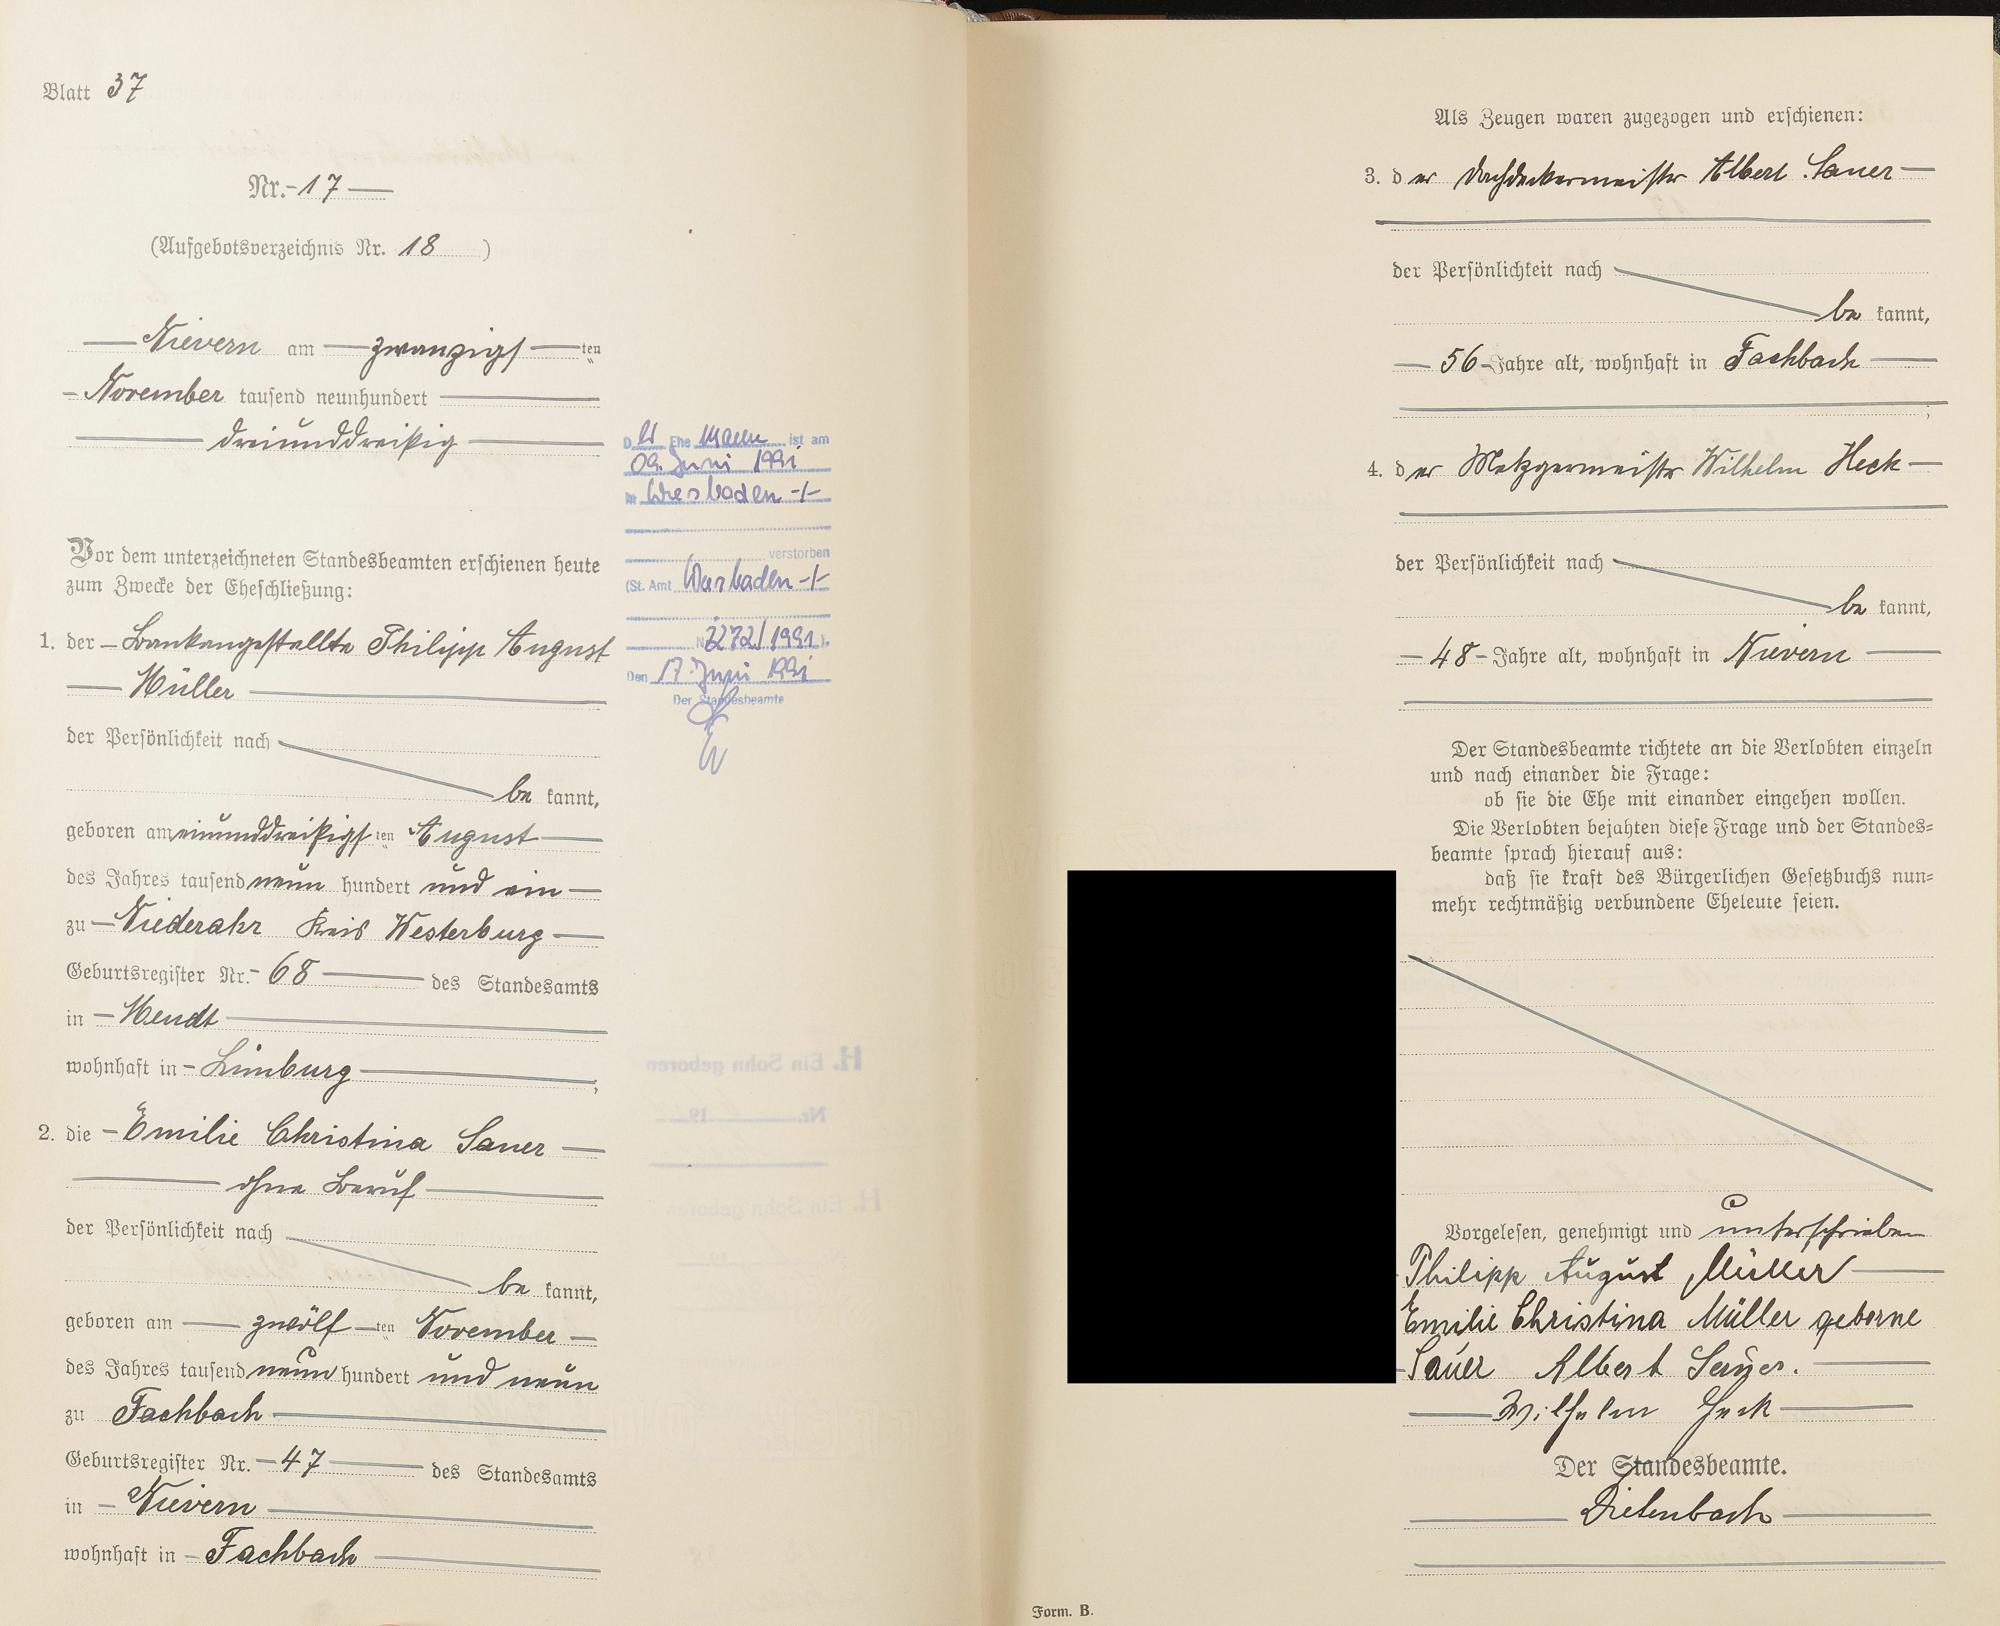 Blatt 37
Nr. 17
(Aufgebotsverzeichnis Nr. 18)
Nievern am zwanzigs ten
November tausend neunhundert
dreiunddreißig
Vor dem unterzeichneten Standesbeamten erschienen heute
zum Zwecke der Eheschließung:
1. der Bankangestellte Philipp August
Müller
der Persönlichkeit nach
be kannt,
geboren am einunddreißigs ten August
des Jahres tausend neun hundert und ein
zu Niederahr Kreis Westerburg
Geburtsregister Nr. 68 des Standesamts
in Mendt
wohnhaft in Limburg ;
2. die Emilie Christina Sauer
ohne Beruf
der Persönlichkeit nach
be kannt,
geboren am zwölf ten November
des Jahres tausend neun hundert und neun
zu Fachbach
Geburtsregister Nr. 47 des Standesamts
in Nievern
wohnhaft in Fachbach
D er Ehe mann ist am
09. Juni 1991
in Wiesbaden -/-
verstorben
(St. Amt Wiesbaden -/-
N 2272/1991).
Den 17. Juni 1991
Der Standesbeamte
H. Ein Sohn geboren
Nr. 19
H. Ein Sohn geboren
Als Zeugen waren zugezogen und erschienen:
3. d er Dachdeckermeister Albert Sauer
der Persönlichkeit nach
be kannt,
56 Jahre alt, wohnhaft in Fachbach
;
4. d er Metzgermeister Wilhelm Heck
der Persönlichkeit nach
be kannt,
48 Jahre alt, wohnhaft in Nievern
Der Standesbeamte richtete an die Verlobten einzeln
und nach einander die Frage:
ob sie die Ehe mit einander eingehen wollen.
Die Verlobten bejahten diese Frage und der Standes=
beamte sprach hierauf aus:
daß sie kraft des Bürgerlichen Gesetzbuchs nun=
mehr rechtmäßig verbundene Eheleute seien.
Vorgelesen, genehmigt und unterschrieben
Philipp August Müller
Emilie Christina Müller geborne
Sauer Albert Sauer.
Wilhelm Heck
Der Standesbeamte.
Dietenbach
Form. B.